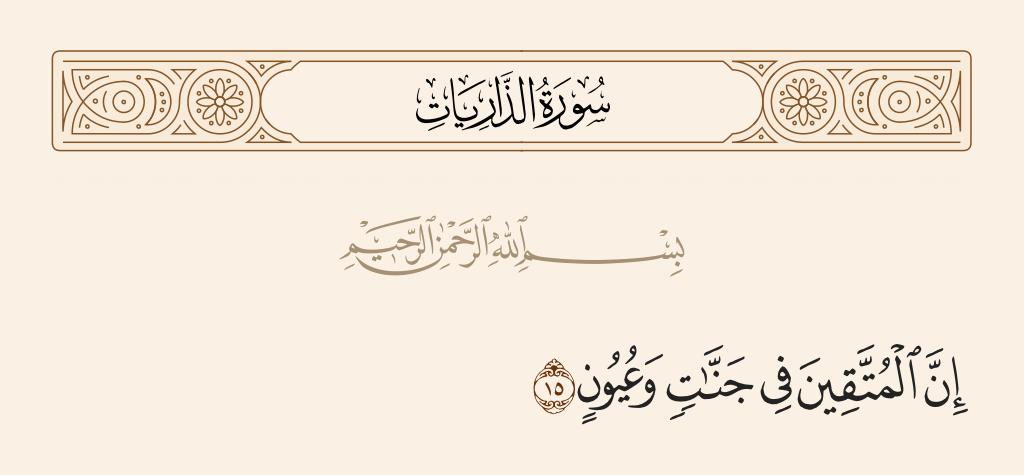 سُورَةُ الذَّارِيَاتِ
بِسْمِ ٱللَّهِ ٱلرَّحْمَٰنِ ٱلرَّحِيمِ
إِنَّ ٱلْمُتَّقِينَ فِى جَنَّٰتٍ وَعُيُونٍ ١٥